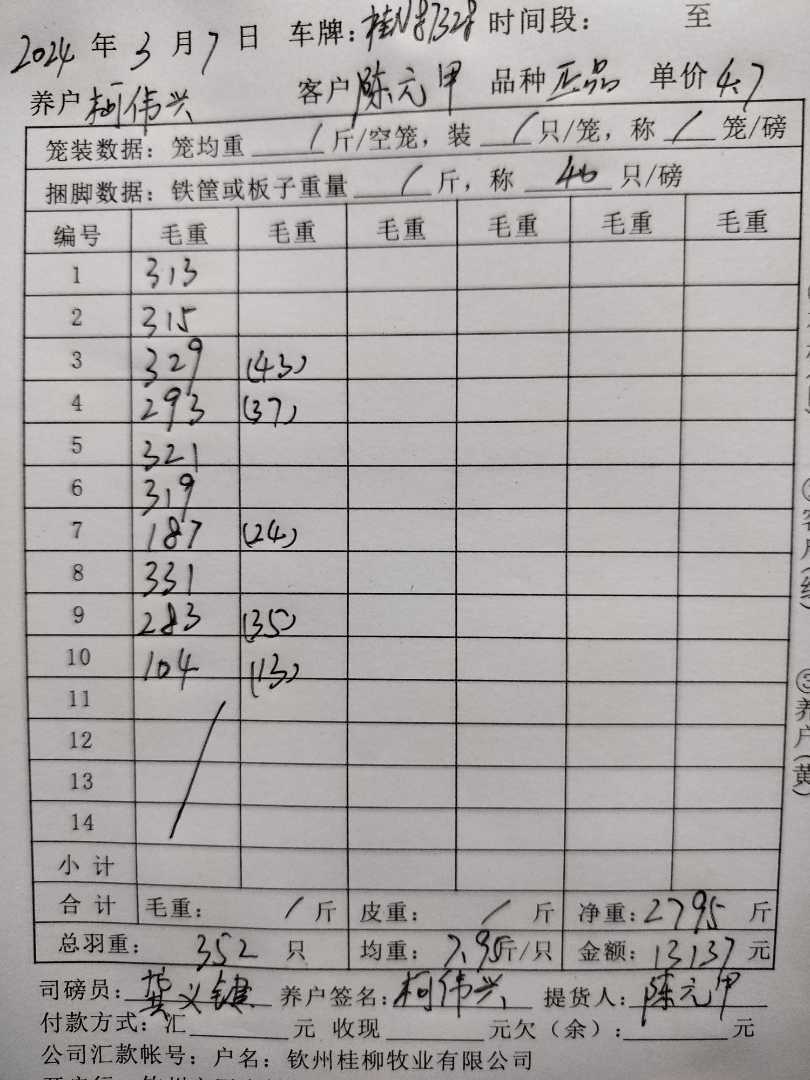 2024 年 3 月 7 日 车牌: 桂N87328 时间段: 至
养户 柯伟兴 客户 陈元甲 品种 正品 单价 4.7
笼装数据: 笼均重 / 斤/空笼, 装 / 只/笼, 称 / 笼/磅
捆脚数据: 铁筐或板子重量 / 斤, 称 40 只/磅
编号 毛重 毛重 毛重 毛重 毛重 毛重
1 313
2 315
3 329 (43)
4 293 (37)
5 321
6 319
7 187 (24)
8 331
9 283 (35)
10 104 (13)
11
12
13
14
小 计
合 计 毛重: / 斤 皮重: / 斤 净重: 2795 斤
总羽重: 352 只 均重: 7.95斤/只 金额: 13137 元
司磅员: 龚义键 养户签名: 柯伟兴 提货人: 陈元甲
付款方式: 汇 元 收现 元欠(余): 元
公司汇款帐号: 户名: 钦州桂柳牧业有限公司
③养户(黄)